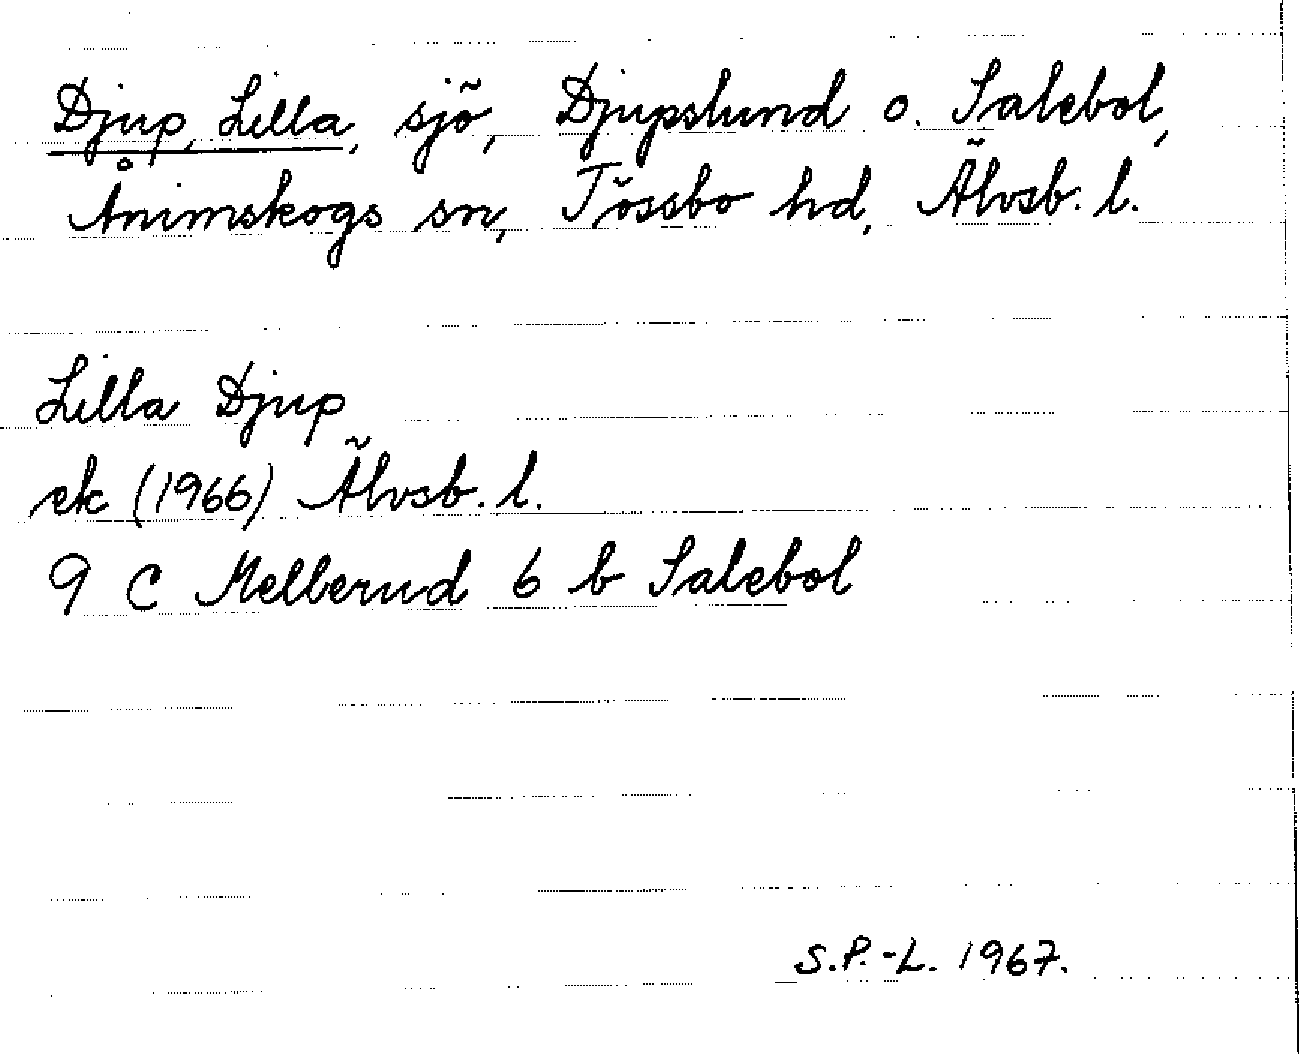 Djup, Lilla, sjö, Djupslund o. Salebol,
Ånimskogs sn, Tössbo hd, Älvsb. l.
Lilla Djup
ek (1966) Älvsb. l.
9 C Mellerud 6 b Salebol
S.P.-L. 1967.